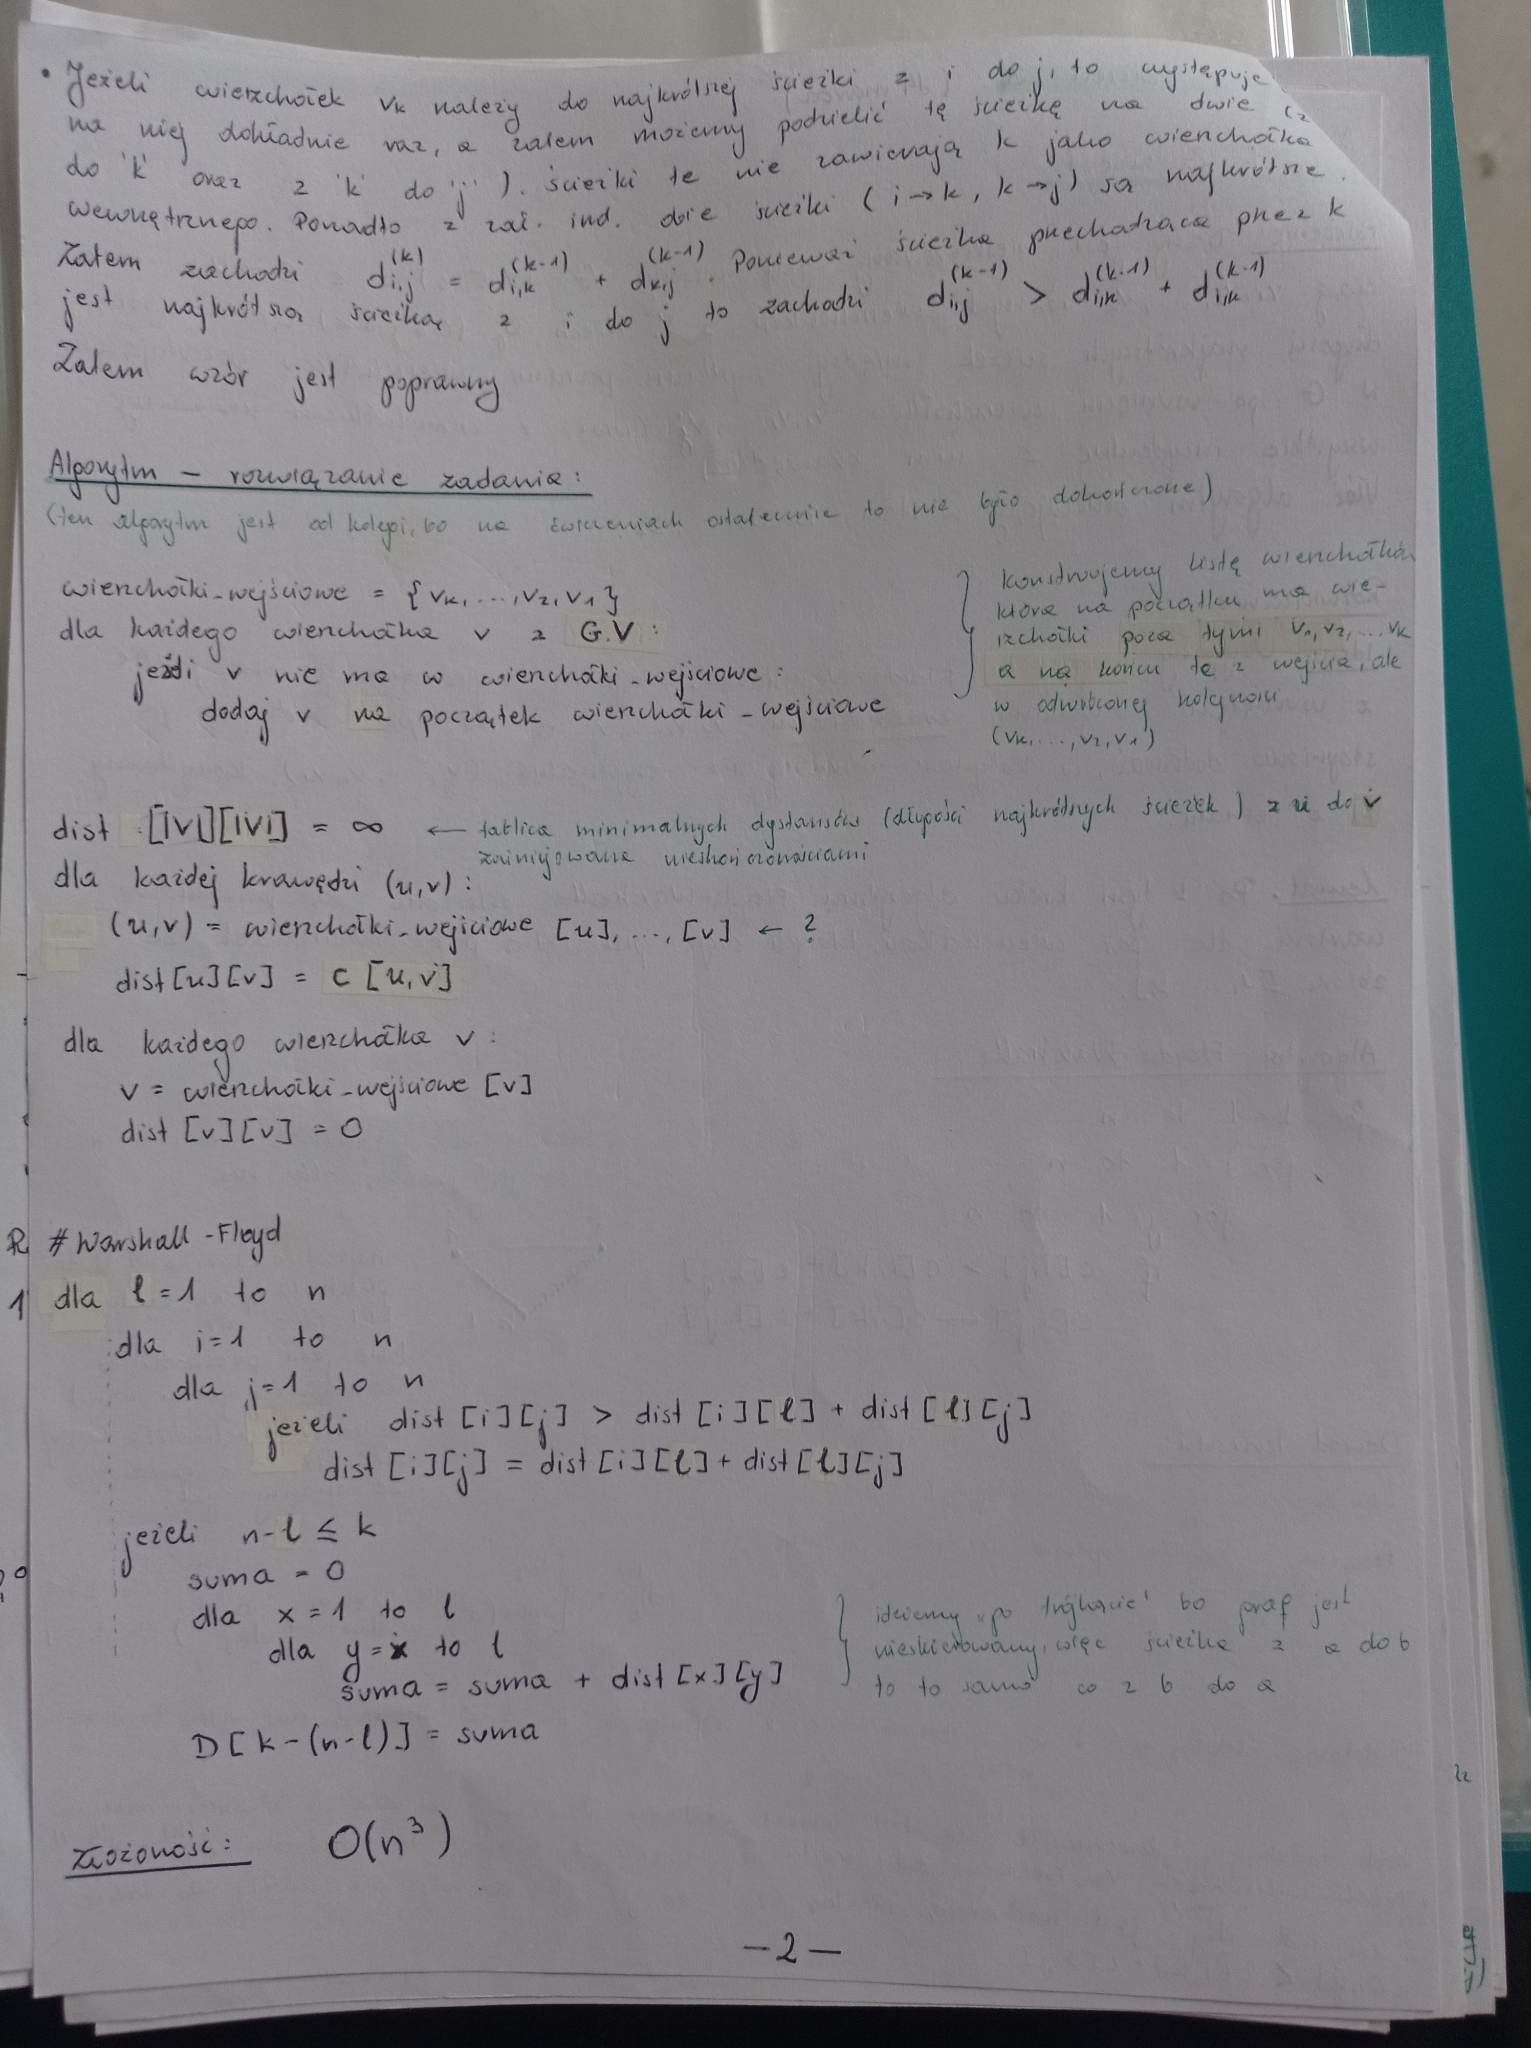 • Jeżeli wierzchołek vₖ należy do najkrótszej ścieżki z i do j, to występuje
na niej dokładnie raz, a zatem możemy podzielić tę ścieżkę na dwie (z
do 'k' oraz z 'k' do 'j'). ścieżki te nie zawierają k jako wierzchołka
wewnętrznego. Ponadto z zał. ind. obie ścieżki (i→k, k→j) są najkrótsze.
Zatem zachodzi d_{i,j}^{(k)} = d_{i,k}^{(k-1)} + d_{k,j}^{(k-1)}. Ponieważ ścieżka przechodząca przez k
jest najkrótszą ścieżką z i do j to zachodzi d_{i,j}^{(k-1)} > d_{i,k}^{(k-1)} + d_{i,k}^{(k-1)}
Zatem wzór jest poprawny
Algorytm – rozwiązanie zadania:
(ten algorytm jest od kolegi, bo na ćwiczeniach ostatecznie to nie było dokończone)
wierzchołki_wejściowe = {vₖ, ..., v₂, v₁}
dla każdego wierzchołka v z G.V:
jeżeli v nie ma w wierzchołki_wejściowe:
dodaj v na początek wierzchołki_wejściowe
konstruujemy listę wierzchołków
która na początku ma wie-
rzchołki poza tymi v₁, v₂, ... vₖ
a na końcu te z wejścia, ale
w odwróconej kolejności
(vₖ, ..., v₂, v₁)
dist [|V|][|V|] = ∞ ← tablica minimalnych dystansów (długości najkrótszych ścieżek) z u do v
zainicjowana nieskończonościami
dla każdej krawędzi (u,v):
(u,v) = wierzchołki_wejściowe [u], ..., [v] ← ?
dist[u][v] = c [u,v]
dla każdego wierzchołka v:
v = wierzchołki_wejściowe [v]
dist [v][v] = 0
# Warshall-Floyd
dla l = 1 to n
dla i = 1 to n
dla j = 1 to n
jeżeli dist [i][j] > dist [i][l] + dist [l][j]
dist [i][j] = dist [i][l] + dist [l][j]
jeżeli n-l ≤ k
suma = 0
dla x = 1 to l
dla y = x to l
suma = suma + dist [x][y]
idziemy "po trójkącie" bo graf jest
nieskierowany, więc ścieżka z a do b
to to samo co z b do a
D[k-(n-l)] = suma
Złożoność: O(n³)
– 2 –